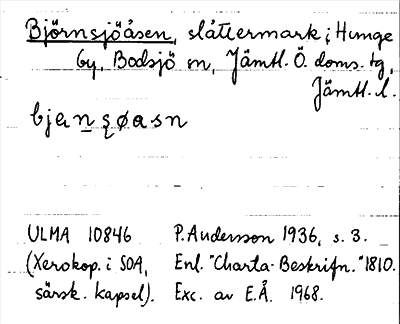 Björnsjöåsen, slåttermark i Hunge
by, Bodsjö sn, Jämtl. Ö. doms. tg,
Jämtl. l.
bjenʂøasn
ULMA 10846 P. Andersson 1936, s. 3.
(Xerokop. i SOA, Enl. "Charta-Beskrifn." 1810.
särsk. kapsel). Exc. av E.Å. 1968.